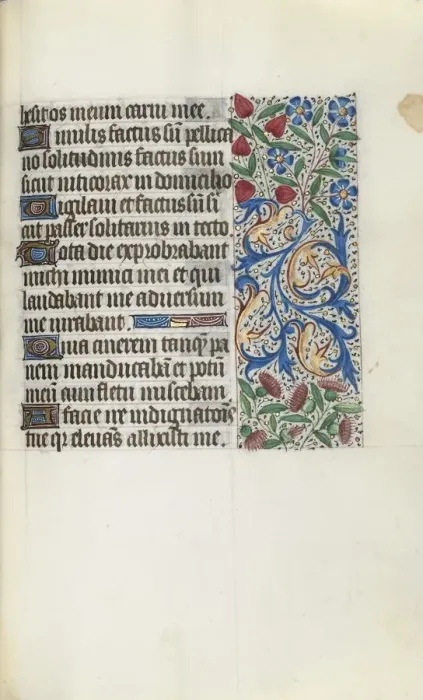 hesit os meum carni mee.
Similis factus sũ pellica
no solitudinis factus sum
sicut niticorax in domicilio
Vigilavi et factus sũ si
cut passer solitarius in tecto
Tota die exprobrabant
michi inimici mei et qui
laudabant me adversum
me iurabant
Quia cinerem tanq̃ pa
nem manducabã et potũ
meũ cum fletu miscebam
A facie ire indignatiõis
tue qr elevãs allixisti me.